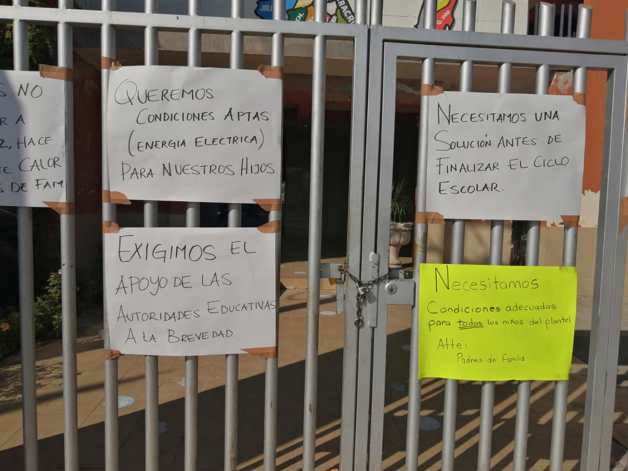 S NO
R A
, HACE
TE CALOR
S DE FAM
QUEREMOS
CONDICIONES APTAS
(ENERGIA ELECTRICA)
PARA NUESTROS HIJOS.
EXIGIMOS EL
APOYO DE LAS
AUTORIDADES EDUCATIVAS
A LA BREVEDAD
NECESITAMOS UNA
SOLUCIÓN ANTES DE
FINALIZAR EL CICLO
ESCOLAR.
Necesitamos
Condiciones adecuadas
para todos los niños del plantel
Atte:
Padres de Familia